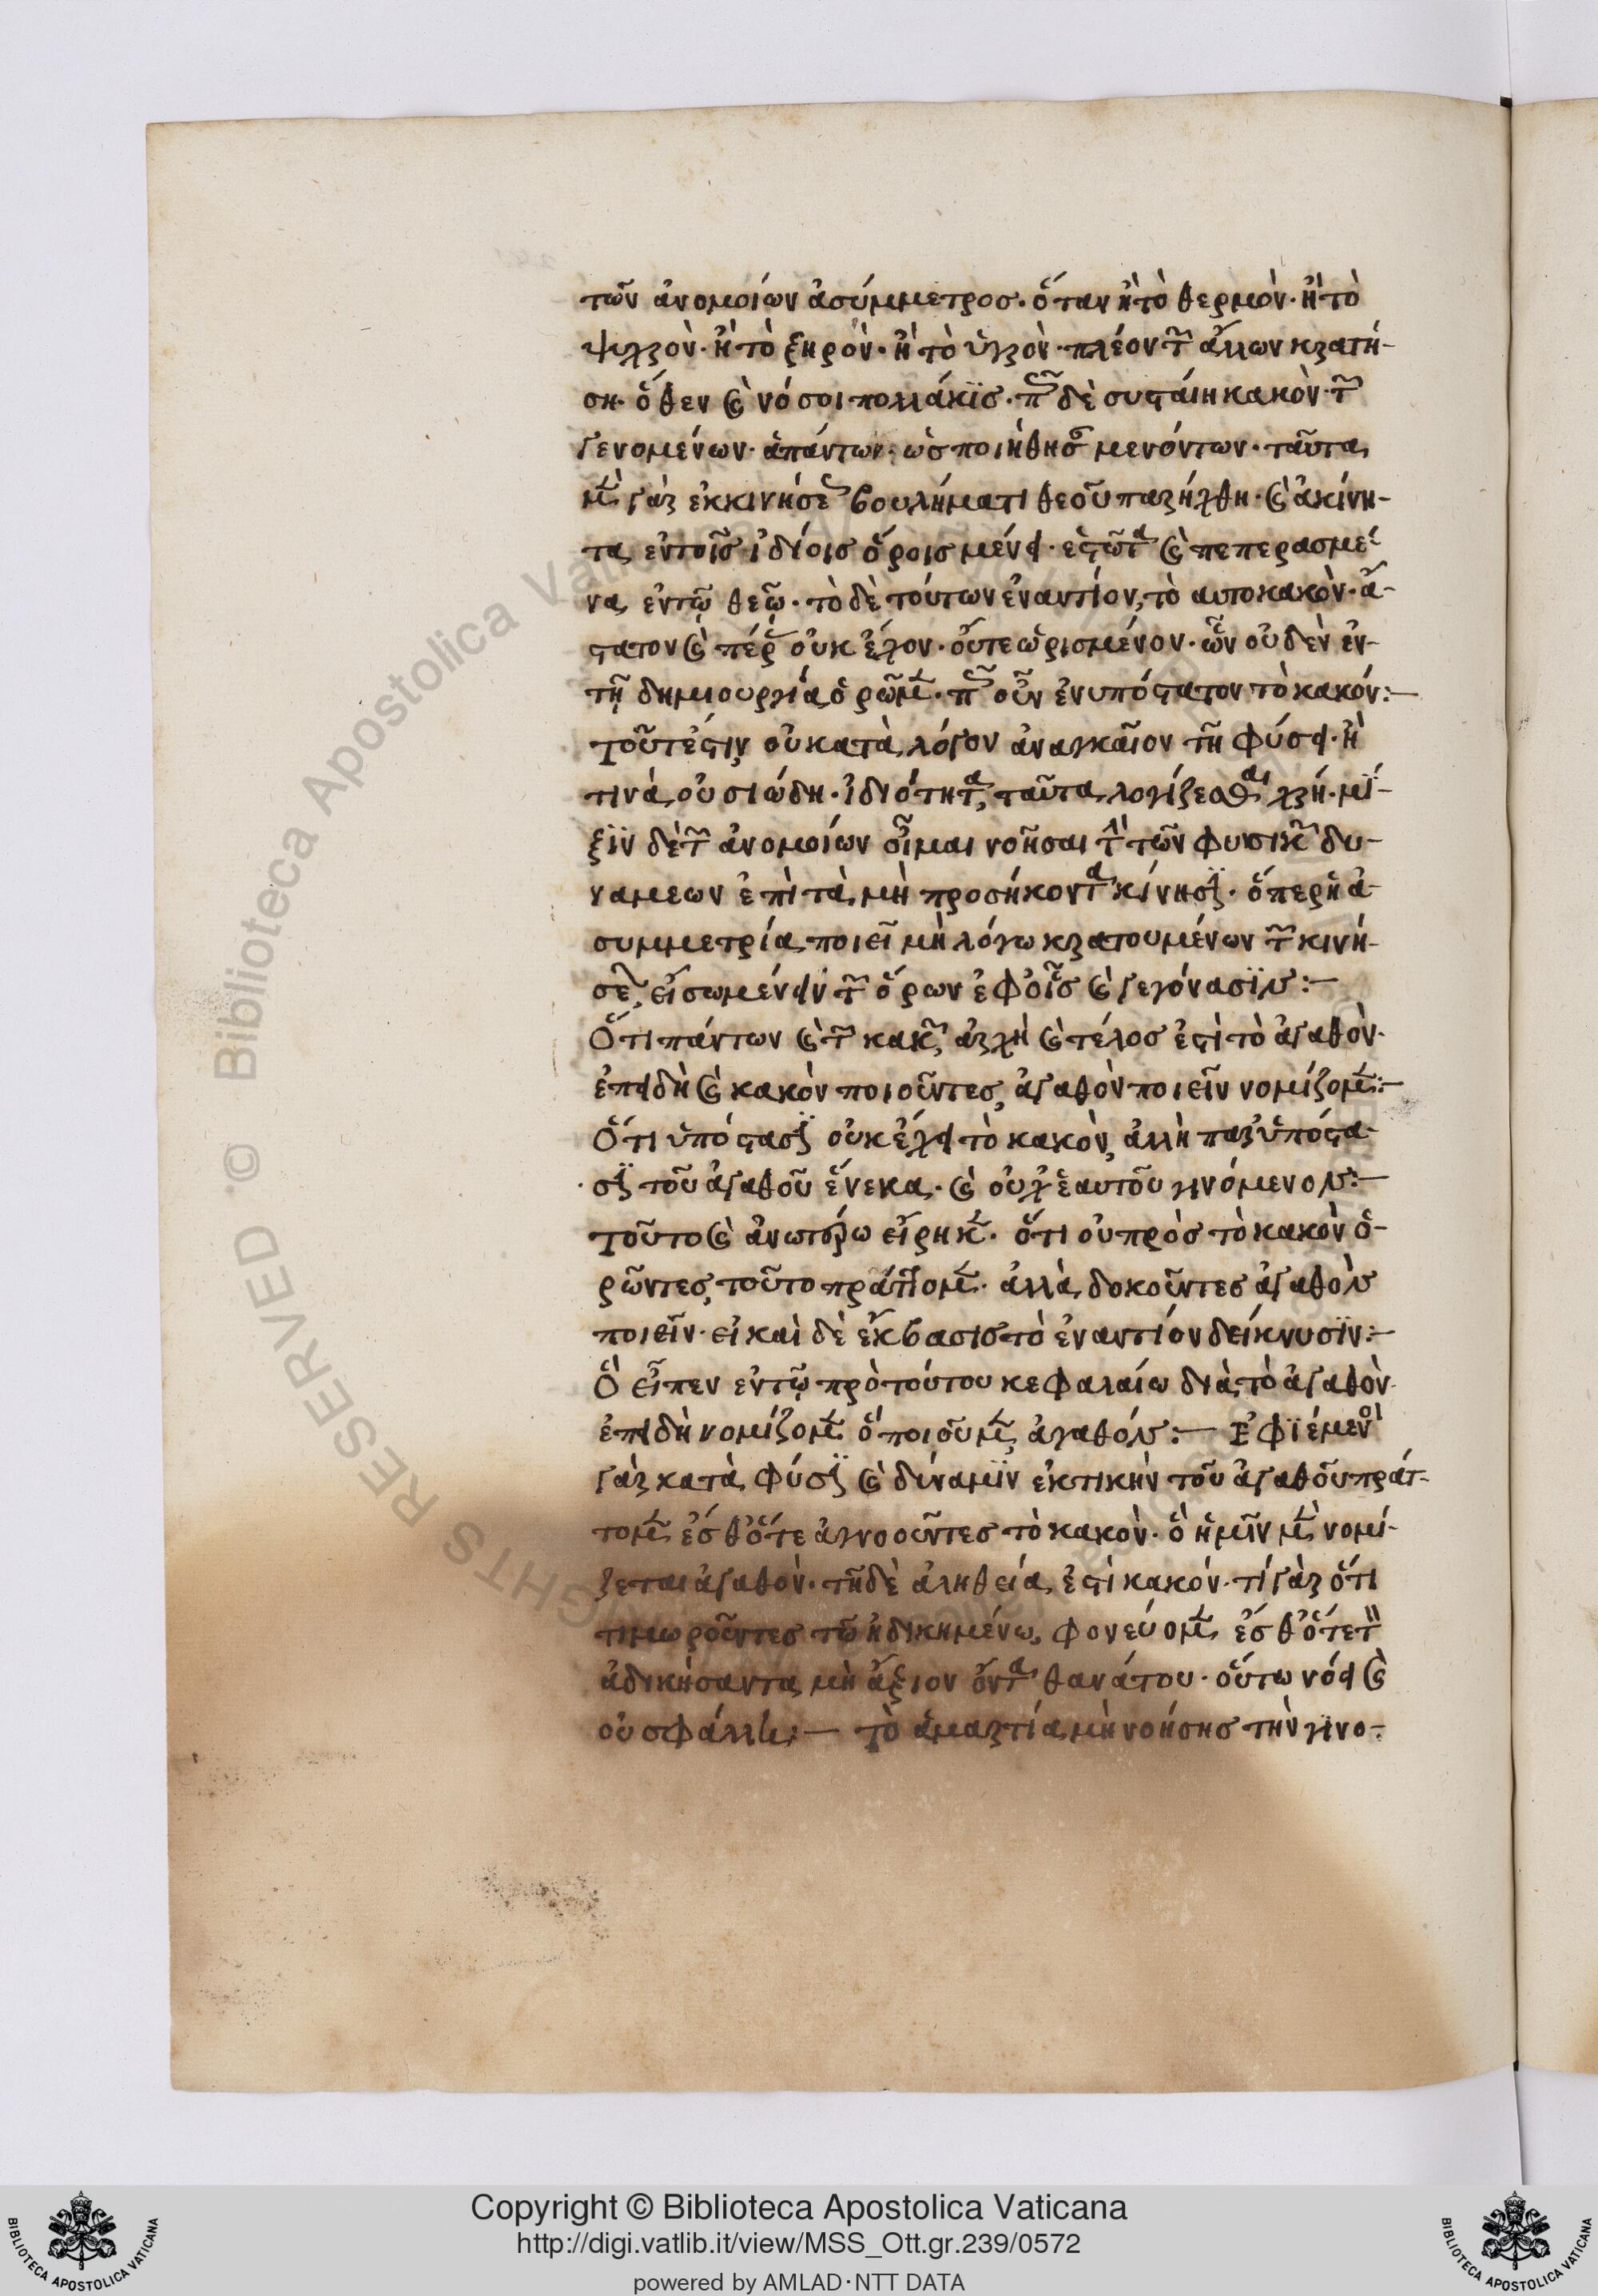 τῶν ἀνομοίων ἀσύμμετρος· ὅταν ἢ τὸ θερμὸν· ἢ τὸ
ψυχρὸν· ἢ τὸ ξηρὸν· ἢ τὸ ὑγρὸν πλέον τῶν ἄλλων κρατή-
ση· ὅθεν καὶ νόσοι πολλάκις· πῶς δὲ συσταίη κακὸν τῶν
γενομένων ἁπάντων· ὡς ποιήθησαν μενόντων· ταῦτα
μὲν γὰρ ἐκ κινήσεως βουλήματι θεοῦ παρήχθη· καὶ ἀκίνη-
τα ἐν τοῖς ἰδίοις ὅροις μένει· ἑστῶτα καὶ πεπερασμέ-
να ἐν τῷ θεῷ· τὸ δὲ τούτων ἐναντίον, τὸ αυτοκακὸν· ἄ-
στατον καὶ πέρας οὐκ ἔχον· οὔτε ὡρισμένον· ὧν οὐδὲν ἐν
τῇ δημιουργία ὁρῶμεν· πῶς οὖν ἐνυπόστατον τὸ κακόν:—
Τοῦτέστιν οὐ κατὰ λόγον ἀναγκαῖον τῇ φύσει· ἢ
τινὰ οὐσιώδη· ἰδιότητα, ταῦτα λογίζεσθαι χρή· μί-
ξιν δὲ τῶν ἀνομοίων οἶμαι νοῆσαι τὴν τῶν φυσικῶν δυ-
ναμεων ἐπὶ τὰ μὴ προσήκοντα κίνησιν· ὅπερ ἡ ἀ-
συμμετρία ποιεῖ μὴ λόγω κρατουμένων τῶν κινή-
σεων, εἴσω μένειν τῶν ὅρων ἐφ οἷς καὶ γεγόνασιν:—
Ὅτι πάντων καὶ τῶν κακῶν, ἀρχὴ καὶ τέλος ἐστὶ τὸ ἀγαθὸν·
ἐπειδὴ καὶ κακὸν ποιοῦντες, ἀγαθὸν ποιεῖν νομίζομεν:—
Ὅτι ὑπόστασιν οὐκ ἔχει τὸ κακὸν, ἀλλὴ παρϋπόστα-
σιν τοῦ ἀγαθοῦ ἕνεκα· καὶ οὐχ ἑαυτοῦ γινόμενον:—
Τοῦτο καὶ ἀνωτέρω εἴρηκεν· ὅτι οὐ πρὸς τὸ κακὸν ὁ-
ρῶντες, τοῦτο πράττομεν· ἀλλὰ δοκοῦντες ἀγαθὸν
ποιεῖν· εἰ καὶ δὲ ἔκβασις τὸ ἐναντίον δείκνυσιν:—
Ὃ εἶπεν ἐν τῷ πρὸ τούτου κεφαλαίω διὰ τὸ ἀγαθὸν·
ἐπειδὴ νομίζομεν ὃ ποιοῦμεν, ἀγαθόν:— Ἐφιέμενοι
γὰρ κατὰ φύσιν καὶ δύναμιν ἐκτικὴν τοῦ ἀγαθοῦ πράτ-
τομεν ἔσθ ὅτε ἀγνοοῦντες τὸ κακὸν· ὃ ἡμῖν μὲν νομί-
ζεται ἀγαθὸν· τῆ δὲ ἀληθεία, ἐστὶ κακόν· τί γὰρ ὅτι
τιμωροῦντες τῷ ἠδικημένω, φονεύομεν ἔσθ ὅτε τὸν
ἀδικήσαντα μὴ ἄξιον ὄντα θανάτου· οὕτω νόει καὶ
οὐ σφάλλη:— Τὸ ἁμαρτία μὴ νοήσης τὴν γινο-
Copyright © Biblioteca Apostolica Vaticana
http://digi.vatlib.it/view/MSS_Ott.gr.239/0572
powered by AMLAD·NTT DATA